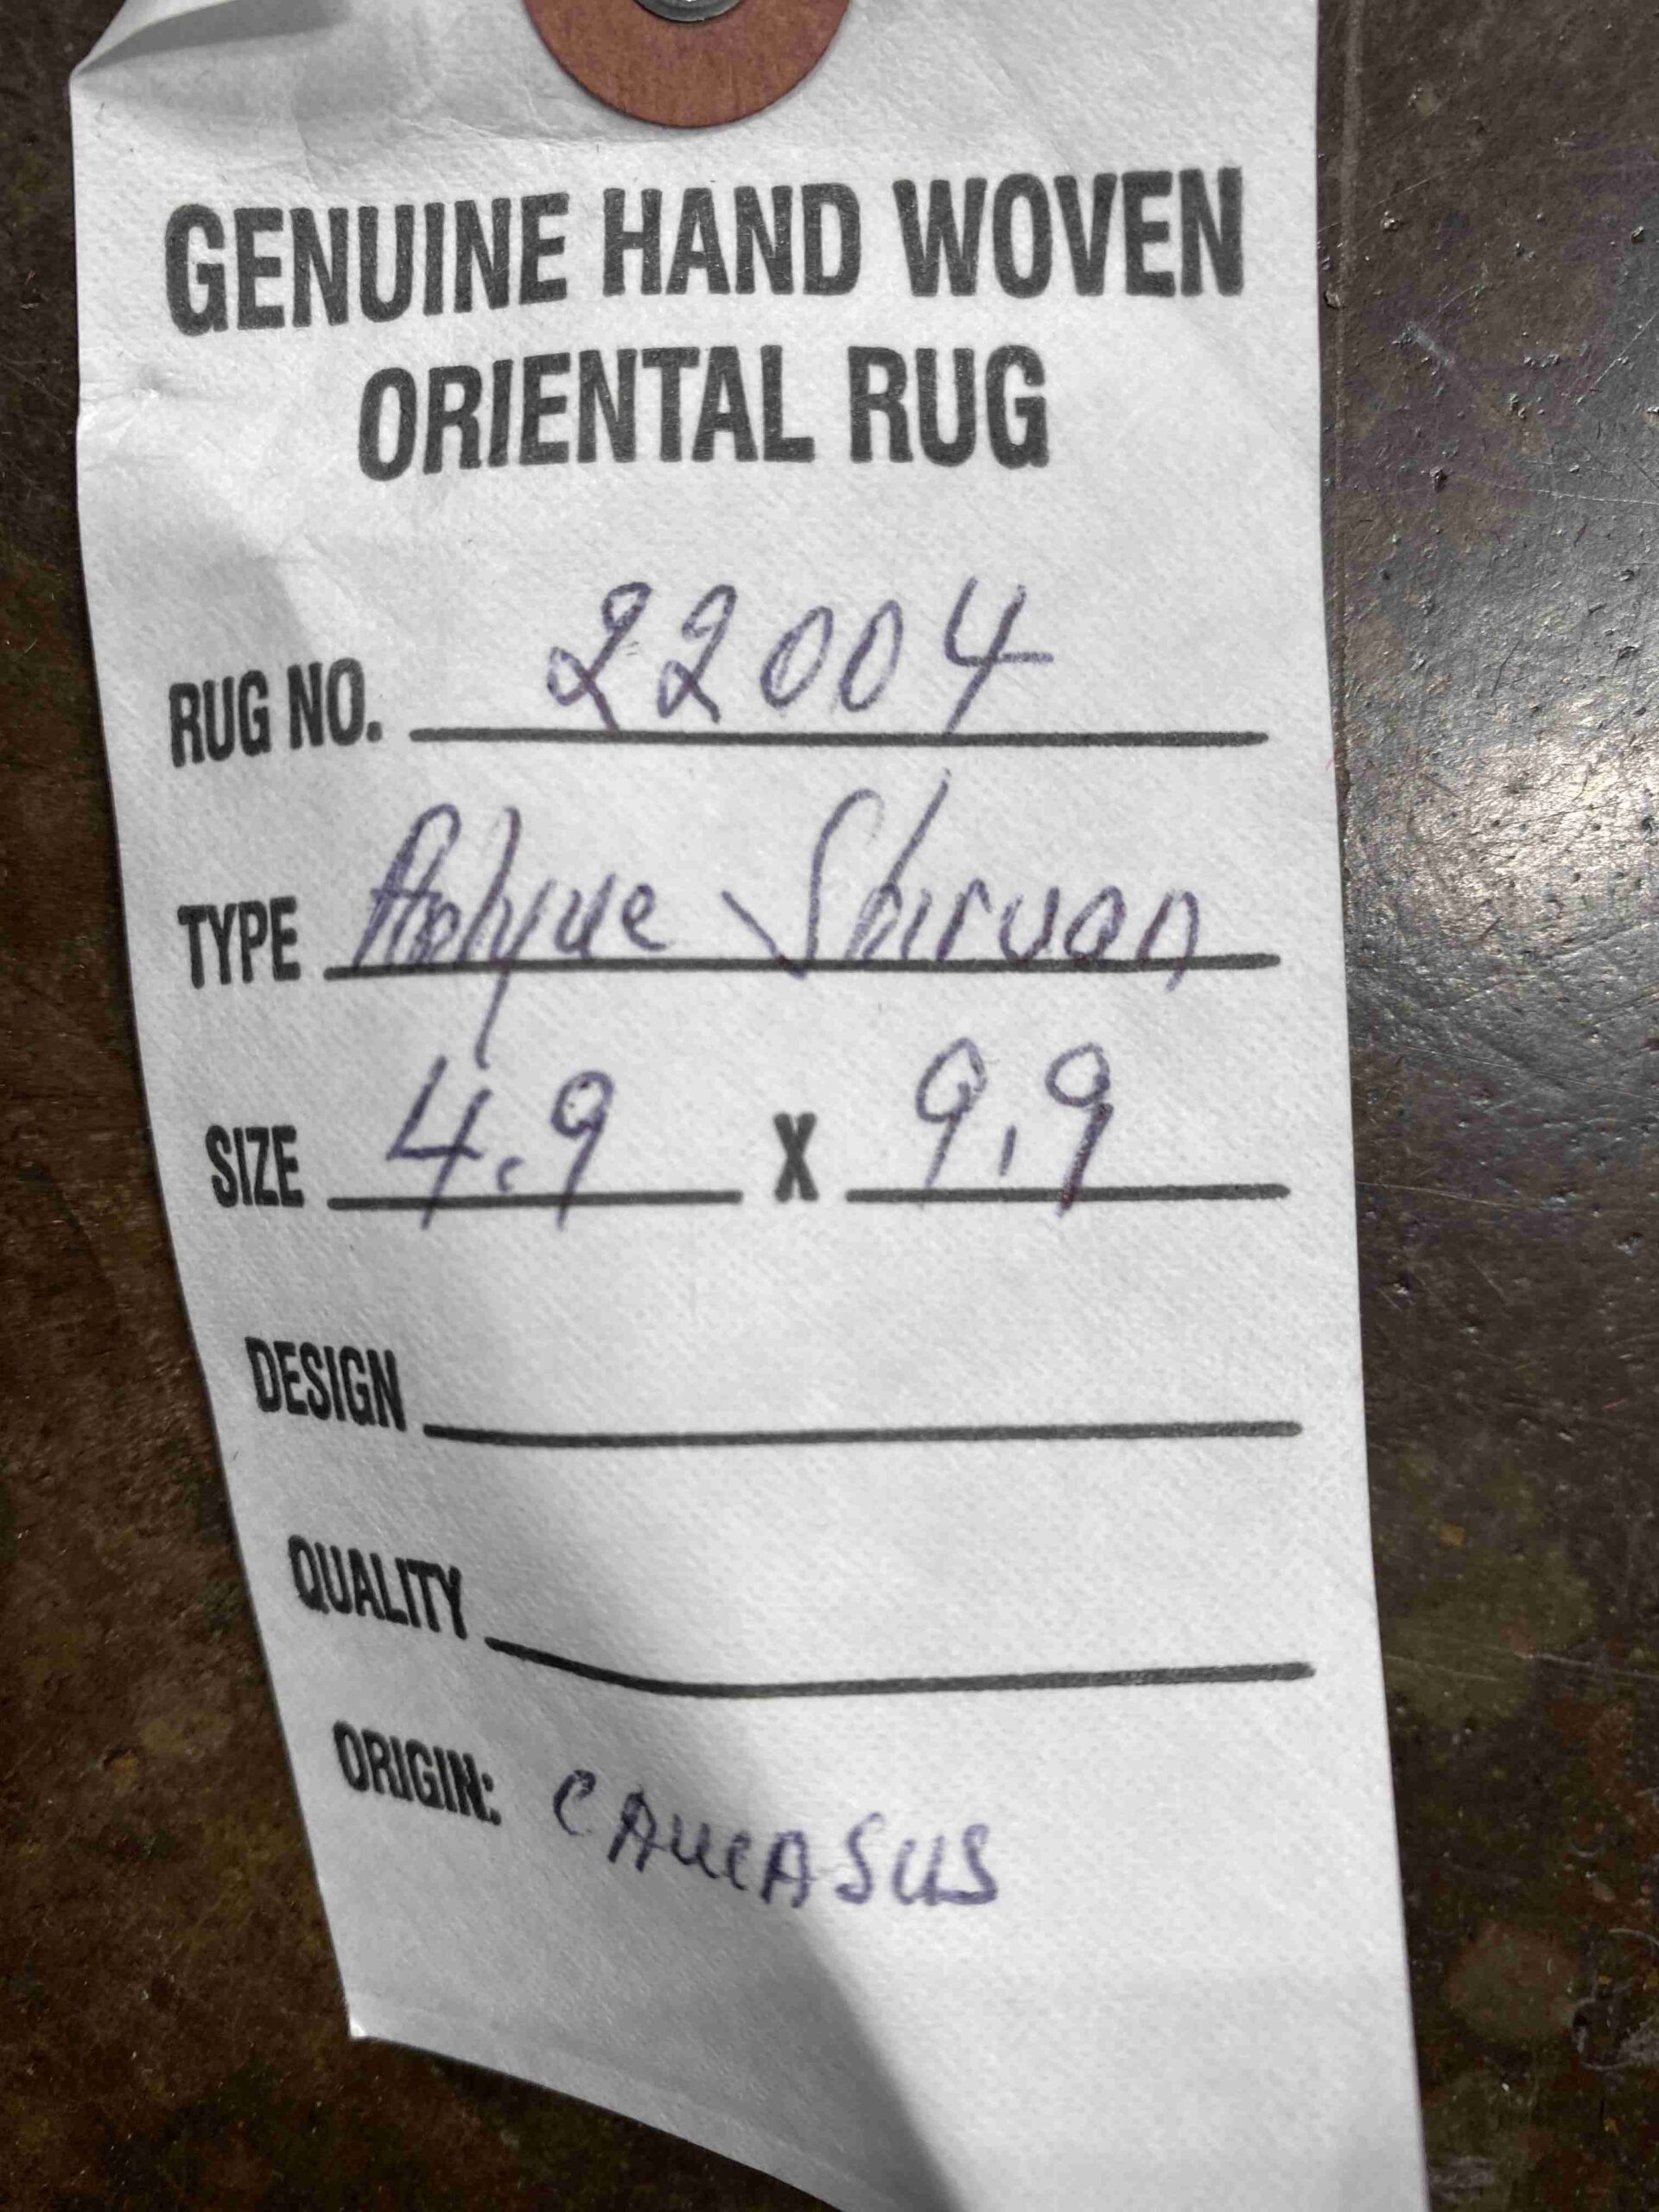 GENUINE HAND WOVEN
ORIENTAL RUG
RUG NO. 22004
TYPE Antique Shirvan
SIZE 4.9 X 9.9
DESIGN
QUALITY
ORIGIN: CAUCASUS